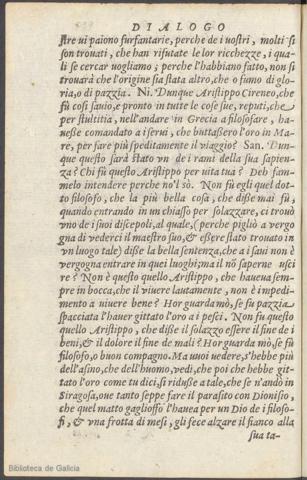 DIALOGO
stre ui paiono furfantarie, perche de i uostri, molti si
son trouati, che han rifutate le lor ricchezze, i qua-
li se cercar uogliamo; perche l'habbiano fatto, non si
trouarà che l'origine sia stata altro, che o fumo di glo-
ria, o di pazzia. Ni. Dunque Aristippo Cireneo, che
fù così sauio, e pronto in tutte le cose sue, reputi, che
per stultitia, nell'andare in Grecia a filosofare, ha-
uesse comandato a i serui, che buttassero l'oro in Ma-
re, per fare più speditamente il uiaggio? San. Dun-
que questo sarà stato vn de i rami della sua sapien-
za? Chi fù questo Aristippo per uita tua? Deh fam-
melo intendere perche no'l sò. Non fù egli quel dot-
to filosofo, che la più bella cosa, che disse mai fù,
quando entrando in un chiasso per solazzare, ci trouò
vno de i suoi discepoli, al quale, (perche pigliò a vergo
gna di vederci il maestro suo, & essere stato trouato in
vn luogo tale) disse la bella sentenza, che a i saui non è
vergogna entrare in quei luoghi; ma il nõ saperne usci
re? Non è questo quello Aristippo, che haueua sem-
pre in bocca, che il viuere lautamente, non è impedi-
mento a uiuere bene? Hor guarda mò, se fu pazzia
spacciata l'hauer gittato l'oro a i pesci. Non fu questo
quello Aristippo, che disse il solazzo essere il fine de i
beni, & il dolore il fine de mali? Hor guarda mò, se fù
filosofo, o buon compagno. Ma vuoi vedere, s'hebbe più
dell'asino, che dell'huomo, vedi, che poi che hebbe git-
tato l'oro come tu dici, si ridusse a tale, che se n'andò in
Siragosa, oue tanto seppe fare il parasito con Dionisio,
che quel matto gaglioffo l'hauea per un Dio de i filoso-
fi, & vna frotta di mesi, gli fece alzare il fianco alla
sua ta-
Biblioteca de Galicia